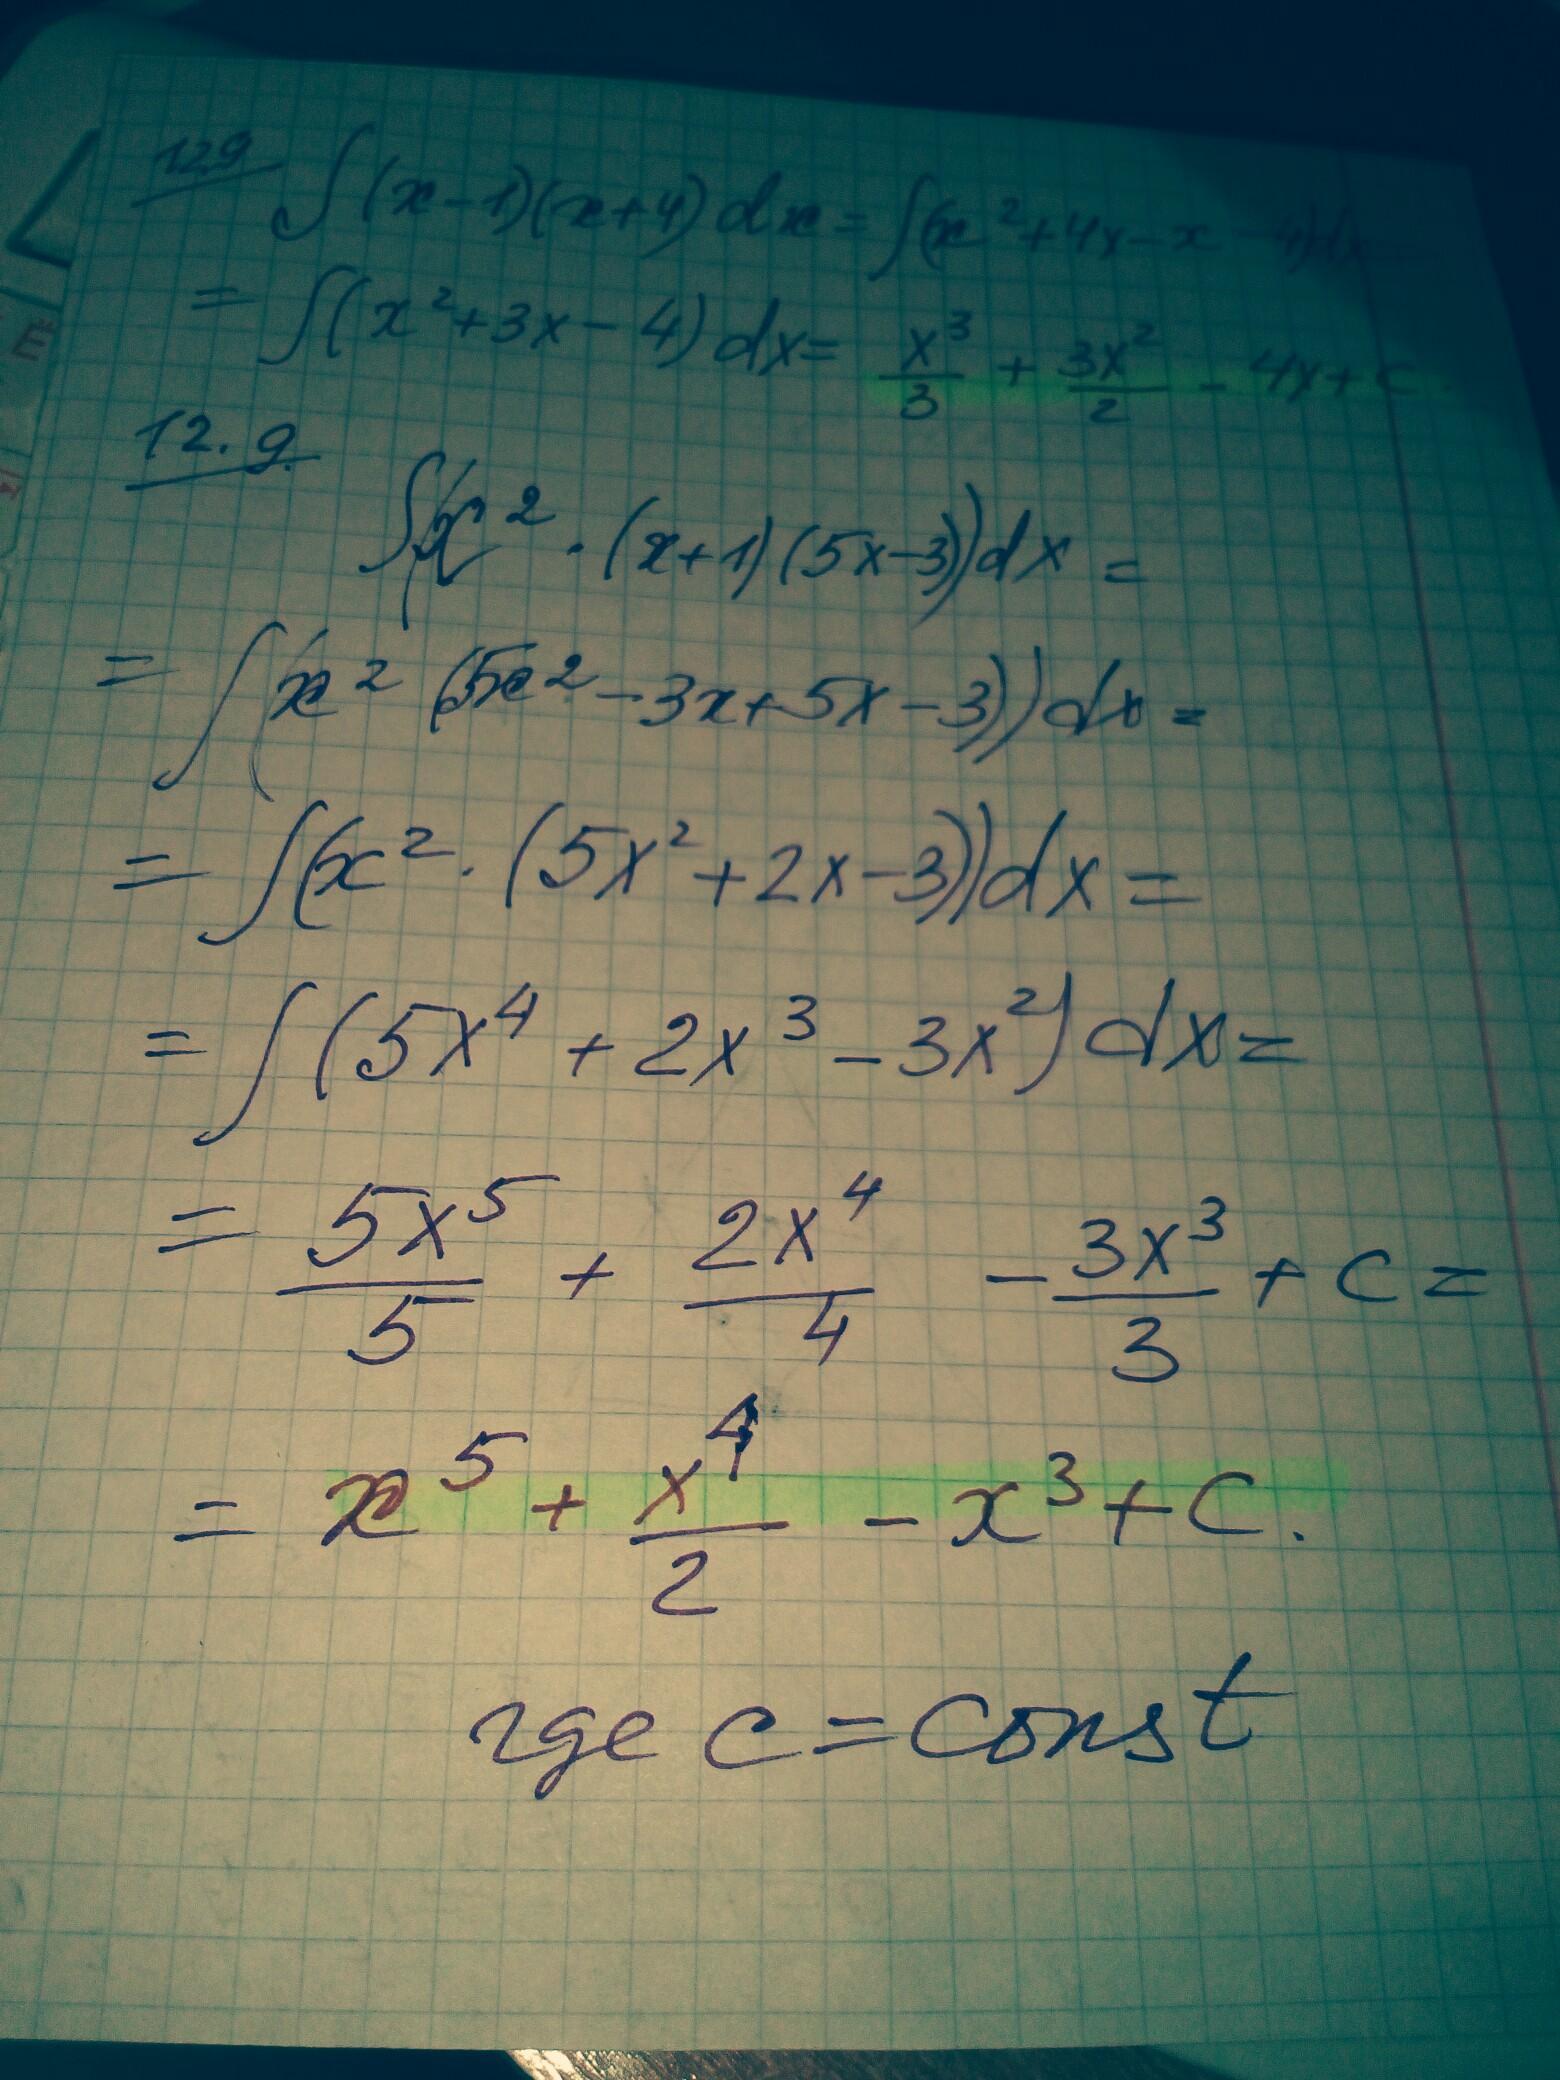 12.9 ∫(x-1)(x+4)dx=∫(x²+4x-x-4)dx=
=∫(x²+3x-4)dx= x³/3 + 3x²/2 - 4x+c.
12.9.
∫(x²·(x+1)(5x-3))dx=
=∫(x²(5x²-3x+5x-3))dx=
=∫(x²·(5x²+2x-3))dx=
=∫(5x⁴+2x³-3x²)dx=
= 5x⁵/5 + 2x⁴/4 - 3x³/3 + c =
= x⁵ + x⁴/2 - x³ + C.
где c=const
Ё